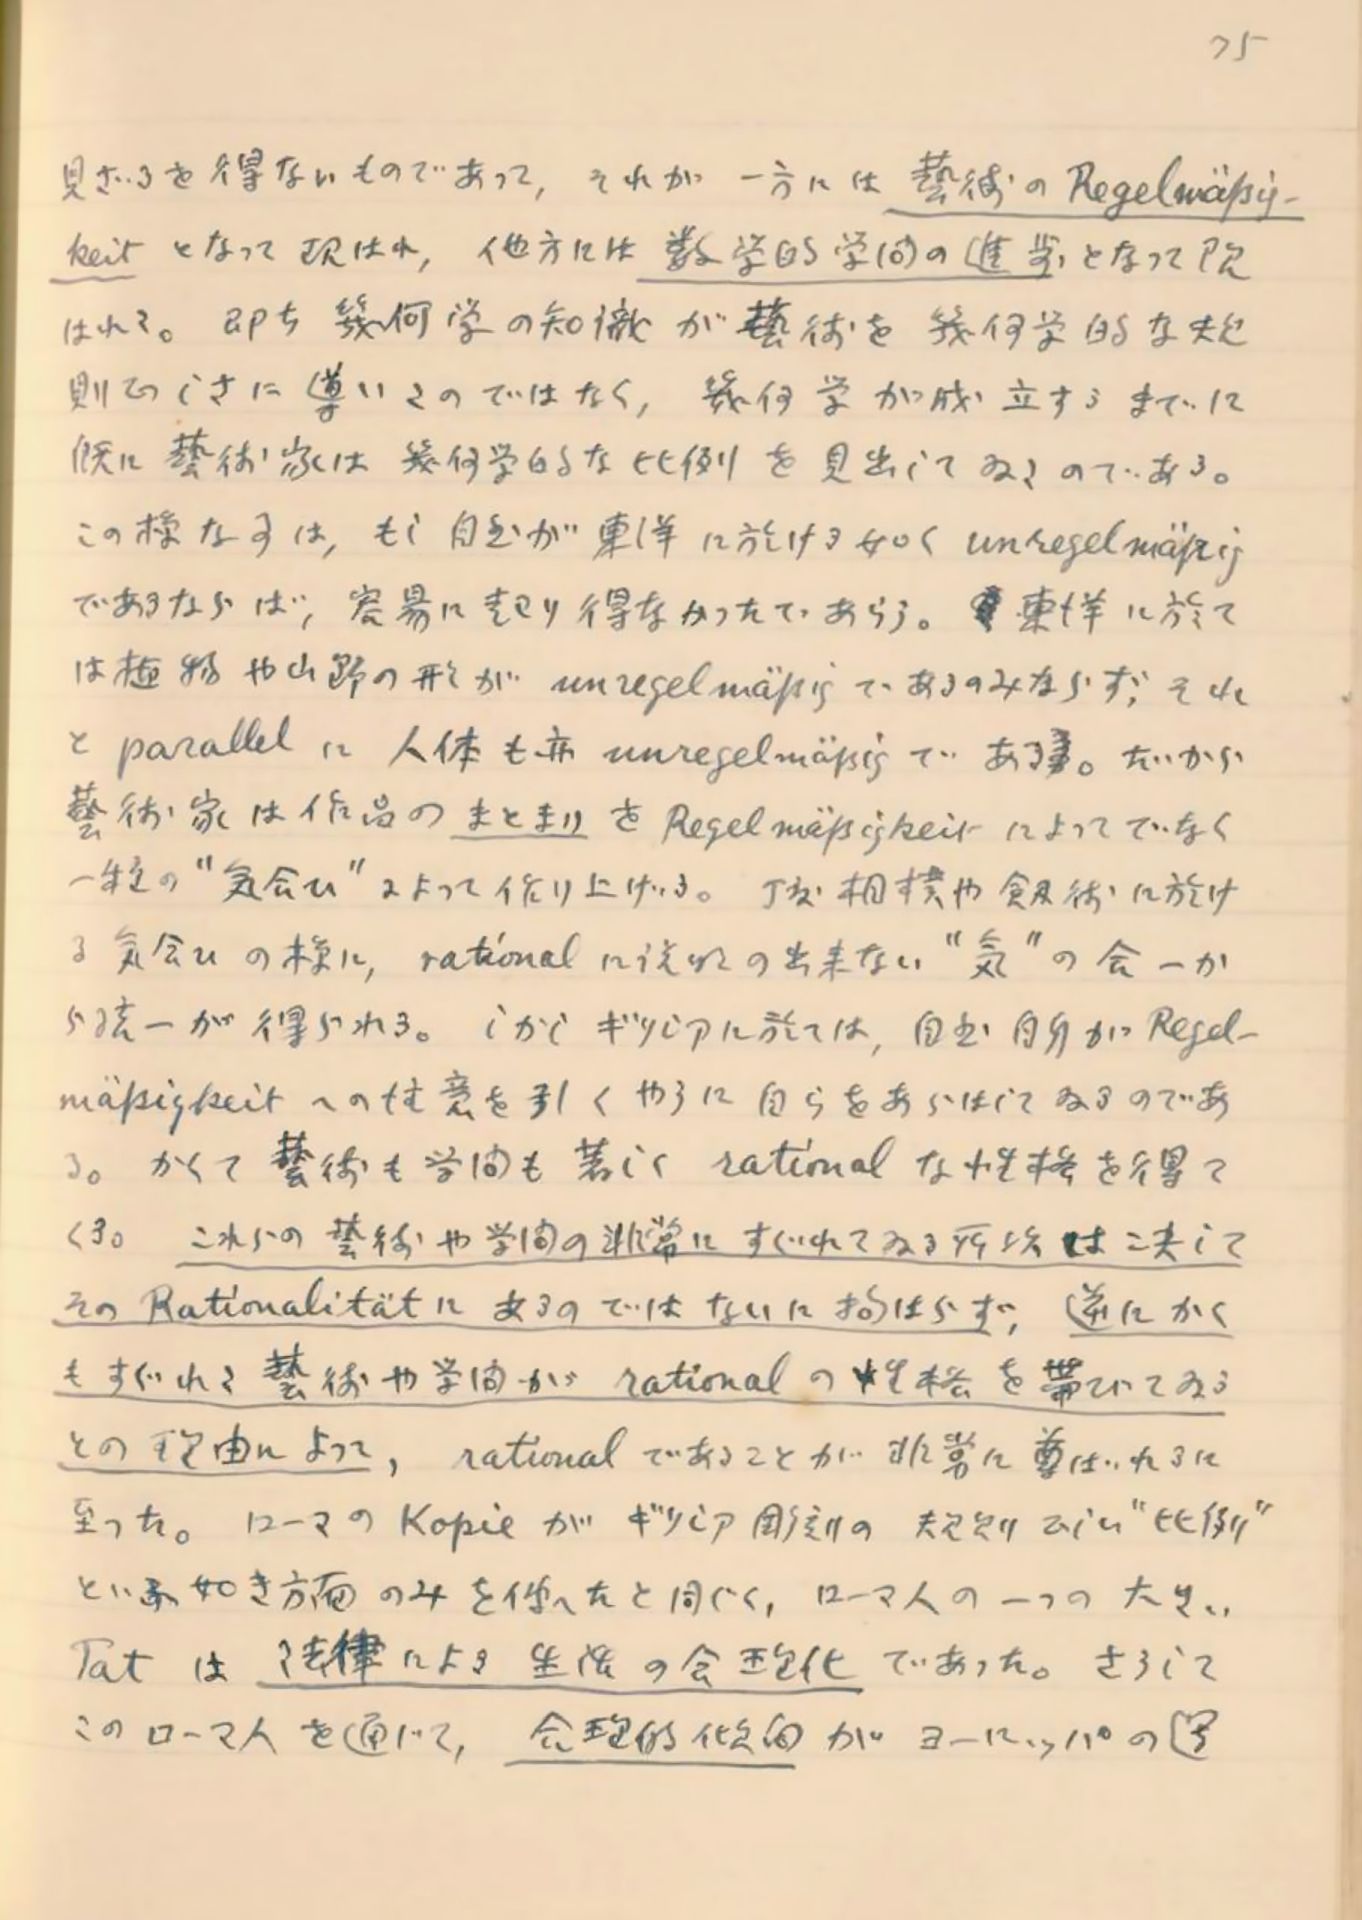 75
見ざるを得ないものであって, それが 一方には 藝術の Regelmäßig-
keit となって現はれ, 他方には 数学的学問の進歩となって現
はれる。 即ち 幾何学の知識が藝術を 幾何学的な規
則正しさに導いたのではなく, 幾何学が成立するまでに
既に藝術家は 幾何学的な比例を見出してゐるのである。
この様な事は, もし自然が東洋に於ける如く unregelmäßig
であるならば, 容易に起り得なかったであらう。 東洋に於て
は植物や山野の形が unregelmäßig であるのみならず, それ
と parallel に 人体も亦 unregelmäßig である。 だから
藝術家は作品のまとまりを Regelmäßigkeit によってでなく
一種の "気合ひ" によって作り上げる。 丁度相撲や剣術に於け
る気合ひの様に, rational に説明の出来ない "気" の合一か
ら統一が得られる。 しかしギリシアに於ては, 自然自身が Regel-
mäßigkeit への注意を引くやうに自らをあらはしてゐるのであ
る。 かくて藝術も学問も著しく rational な性格を得て
くる。 これらの藝術や学問の非常にすぐれてゐる所以は決して
その Rationalität にあるのではないに拘はらず, 逆にかく
もすぐれた藝術や学問が rational の性格を帯びてゐる
との理由によって, rational であることが非常に尊ばれるに
至った。 ローマの Kopie が ギリシア彫刻の 規則正しい "比例"
といふ如き方面のみを伝へたと同じく, ローマ人の一つの大きい
Tat は 法律による生活の合理化 であった。 さうして
このローマ人を通じて, 合理的傾向 が ヨーロッパの運